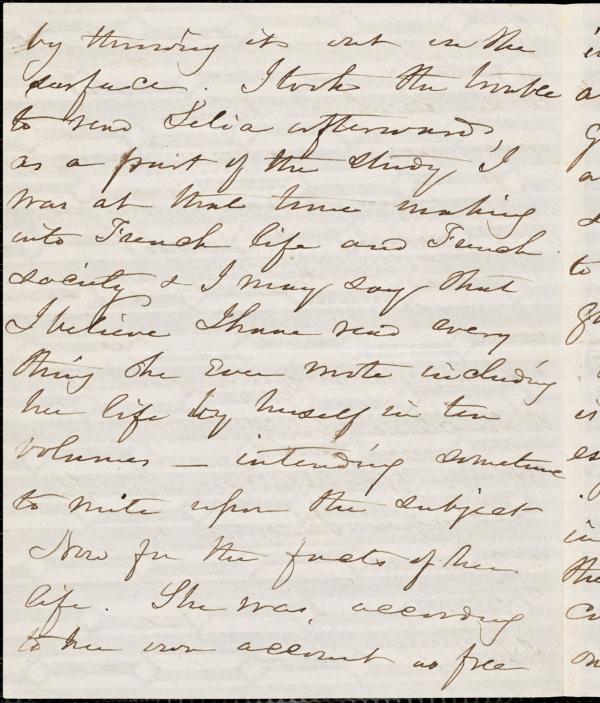 by throwing it out on the
surface. I took the trouble
to read Lelia afterwards,
as a part of the study I
was at that time making
into French life and French
society & I may say that
I believe I have read every
thing she ever wrote including
her life by herself in ten
volumes — intending sometime
to write upon the subject
Now for the facts of her
life. She was, according
to her own account as free